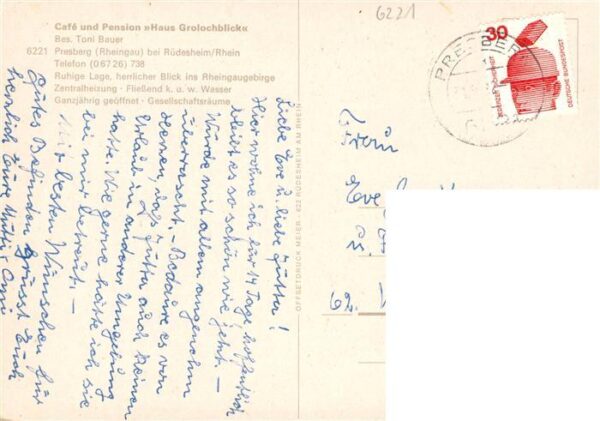 Café und Pension »Haus Grolochblick«
Bes. Toni Bauer
6221 Presberg (Rheingau) bei Rüdesheim/Rhein
Telefon (0 67 26) 738
Ruhige Lage, herrlicher Blick ins Rheingaugebirge
Zentralheizung · Fließend k. u. w. Wasser
Ganzjährig geöffnet · Gesellschaftsräume
Liebe Eve u. liebe Jutta!
Hier wohne ich für 14 Tage hoffentlich
bleibt es so schön wie jetzt. –
Würde mit allem angenehm
überrascht. – Bedaure es von
Herzen, dass Jutta auch keinen
Urlaub in anderer Umgebung
hatte. Wie gerne hätte ich sie
bei mir betreut. –
Mit besten Wünschen für
gutes Befinden grüsst Euch
herzlich Eure Mutti + Omi
OFFSETDRUCK MEIER · 622 RÜDESHEIM AM RHEIN
6221
PRESBER
30
DEUTSCHE BUNDESPOST
Frau
Eve
u. J
62.